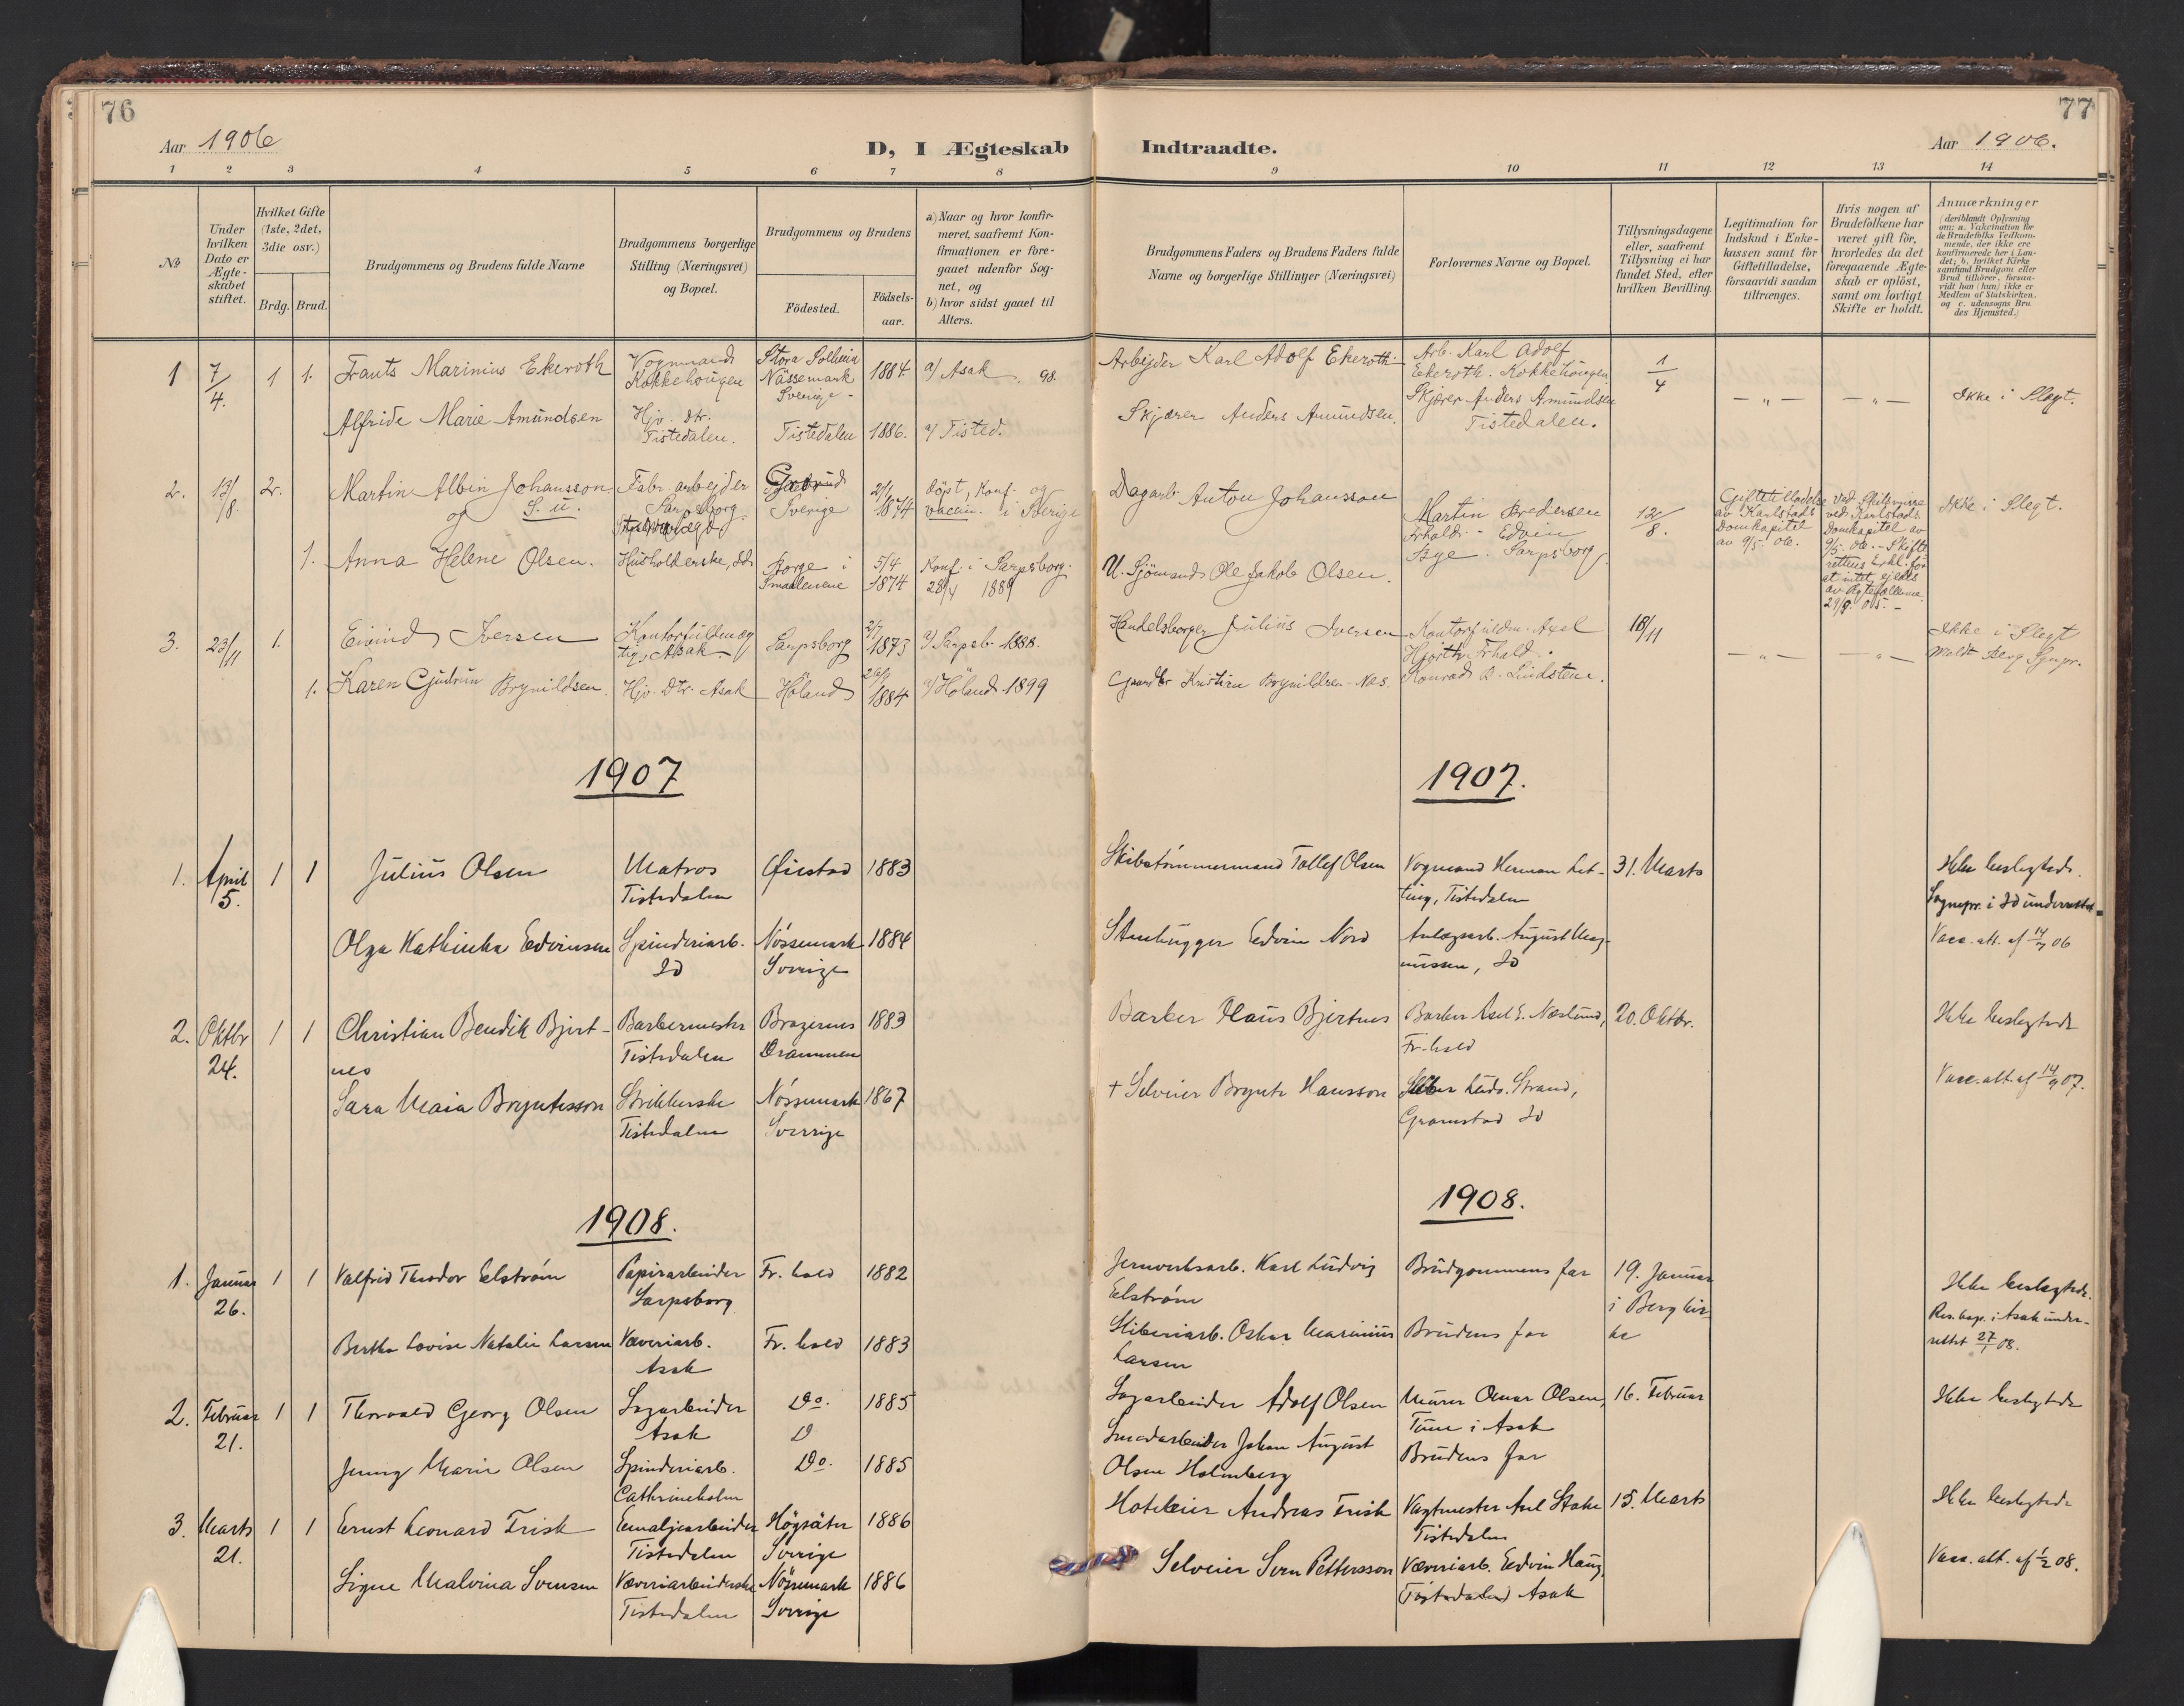 76
Aar 1906
D, I Ægteskab
1 2 3 4 5 6 7 8
№
Under hvilken Dato er Ægte-skabet stiftet.
Hvilket Gifte (1ste, 2det, 3die osv.)
Brdg. Brud.
Brudgommens og Brudens fulde Navne
Brudgommens borgerlige Stilling (Næringsvei) og Bopæl.
Brudgommens og Brudens
Födested.
Födsels-aar.
a) Naar og hvor konfir-
meret, saafremt Kon-
firmationen er fore-
gaaet udenfor Sog-
net, og
b) hvor sidst gaaet til
Alters.
1 7/4. 1 1. Frants Marinius Ekeroth Vognmand Kokkehougen Stora Solhem Nässemark Sverige 1884. a/ Asak 98.
Alfride Marie Amundsen Hjv. dtr. Tistedalen. Tistedalen 1886. a/ Tisted.
2. 13/8. 2. Martin Albin Johansson Fabr. arbejder Sarpsborg. Sverige 2/1 1874 döpt, Konf. og vaccin. i Sverige
og S. u.
1. Anna Helene Olsen. Husholderske, sds Borge i Smaalenene 5/4 1874 Konf. i Sarpsborg. 28/4 1889
3. 23/11 1. Eivind Iversen Asak Sarpsborg 1873 a/ Sarpsb. 1888.
1. Karen Gudrun Brynildsen. Hjv. Dtr. Asak Höland 1884 a/ Höland 1899
1907
1. April 5. 1 1 Julius Olsen Matros Tistedalen Øiestad 1883
Olga Kathinka Edvinsen Spinderiarb. Id Nössemark Sverrige 1884
2. Oktbr 24. 1 1 Christian Bendik Bjert-nes Barbermester Tistedalen Bragernes Drammen 1883
Sara Maia Bryntesson Strikkerske Tistedalen Nössemark Sverrige 1867
1908.
1. Januar 26. 1 1 Valfrid Theodor Elström Papirarbeider Sarpsborg Fr. hald 1882
Bertha Lovise Natalie Larsen Væveriarb. Asak Fr. hald 1883
2. Februar 21. 1 1 Thorvald Georg Olsen Sagarbeider Asak Do. 1885
Jenny Marie Olsen Spinderiarb. Cathrineholm Do. 1885
3. Marts 21. 1 1 Ernst Leonard Frisk Emaljearbeider Tistedalen Högsäter Sverige 1886
Signe Malvina Svensen Væveriarbeiderske Tistedalen Nössemark Sverige 1886
77
Indtraadte.
Aar 1906.
9 10 11 12 13 14
Brudgommens Faders og Brudens Faders fulde
Navne og borgerlige Stillinger (Næringsvei)
Forlovernes Navne og Bopæl.
Tillysningsdagene
eller, saafremt
Tillysning ei har
fundet Sted, efter
hvilken Bevilling.
Legitimation for
Indskud i Enke-
kassen samt for
Giftetilladelse,
forsaavidt saadan
tiltrænges.
Hvis nogen af
Brudefolkene har
været gift för,
hvorledes da det
foregaaende Ægte-
skab er oplöst,
samt om lovligt
Skifte er holdt.
Anmærkninger
(deriblandt Oplysning
om: a. Vakcination for
de Brudefolks Vedkom-
mende, der ikke ere
konfirmerede her i Lan-
det; b. hvilket Kirke
samfund Brudgom eller
Brud tilhörer, forsaa-
vidt han (hun) ikke er
Medlem af Statskirken.
og c. udensogns Bru
des Hjemsted.)
Arbejder Karl Adolf Ekeroth. Arb. Karl Adolf Ekeroth. Kokkehougen 1/4 — „ — — „ — Ikke i Slegt.
Skjærer Anders Amundsen. Skjærer Anders Amundsen Tistedalen.
Dagarb. Anton Johansson Martin Fredrhald. - Edvin Bye. Sarpsborg. 12/8. Giftetilladelse av Karlstads Domkapitel av 9/5. 06. Ved Skilsmisse ved Karlstads Domkapitel av 9/5. 06. - Skifterettens Erkl. for at intet ejedes av Ægtefællerne. Ikke i Slegt.
U. Sjömand Ole Jakob Olsen.
Handelsborger Julius Iversen Kontorfuldm. Axel Hjorth Frhald. 18/11 — „ — — „ — Ikke i Slegt
Kristian Brynildsen - Næs. Konrad B. Lindsten.
1907.
Skibstömmermand Tollef Olsen Vogmand Herman Letting, Tistedalen 31. Marts Ikke beslegtede.
Sognepr. i Id underrettet
Stenhugger Edvin Nord Anlægsarb. August Magnussen, Id Vacc. att. af 06
Barber Hans Bjertnes Barber Axel E. Næslund, Fr. hald 20. Oktbr. Ikke beslegtede
† Selveier Brynte Hansson Ludv. Strand, Id Vacc. att. af 14/9 07.
1908.
Jernverksarb. Karl Ludvig Elström Brudgommens far 19. Januar i Berg kirke Ikke beslegtede.
Res. kap. i Asak underrettet 27/1 08.
Sliberiarb. Oskar Marinius Larsen Brudens far
Sagarbeider Adolf Olsen Murer Omar Olsen, Tune i Asak 16. Februar Ikke beslegtede
Smedarbeider Johan August Olsen Holmberg Brudens far
Hoteleier Andreas Frisk Vagtmester Axel Stake Tistedalen 15. Marts Ikke beslegtede
Selveier Sven Pettersson Væveriarb. Edvin Haug, (Tistedalen) Asak Vacc. att. af 1/2 08.